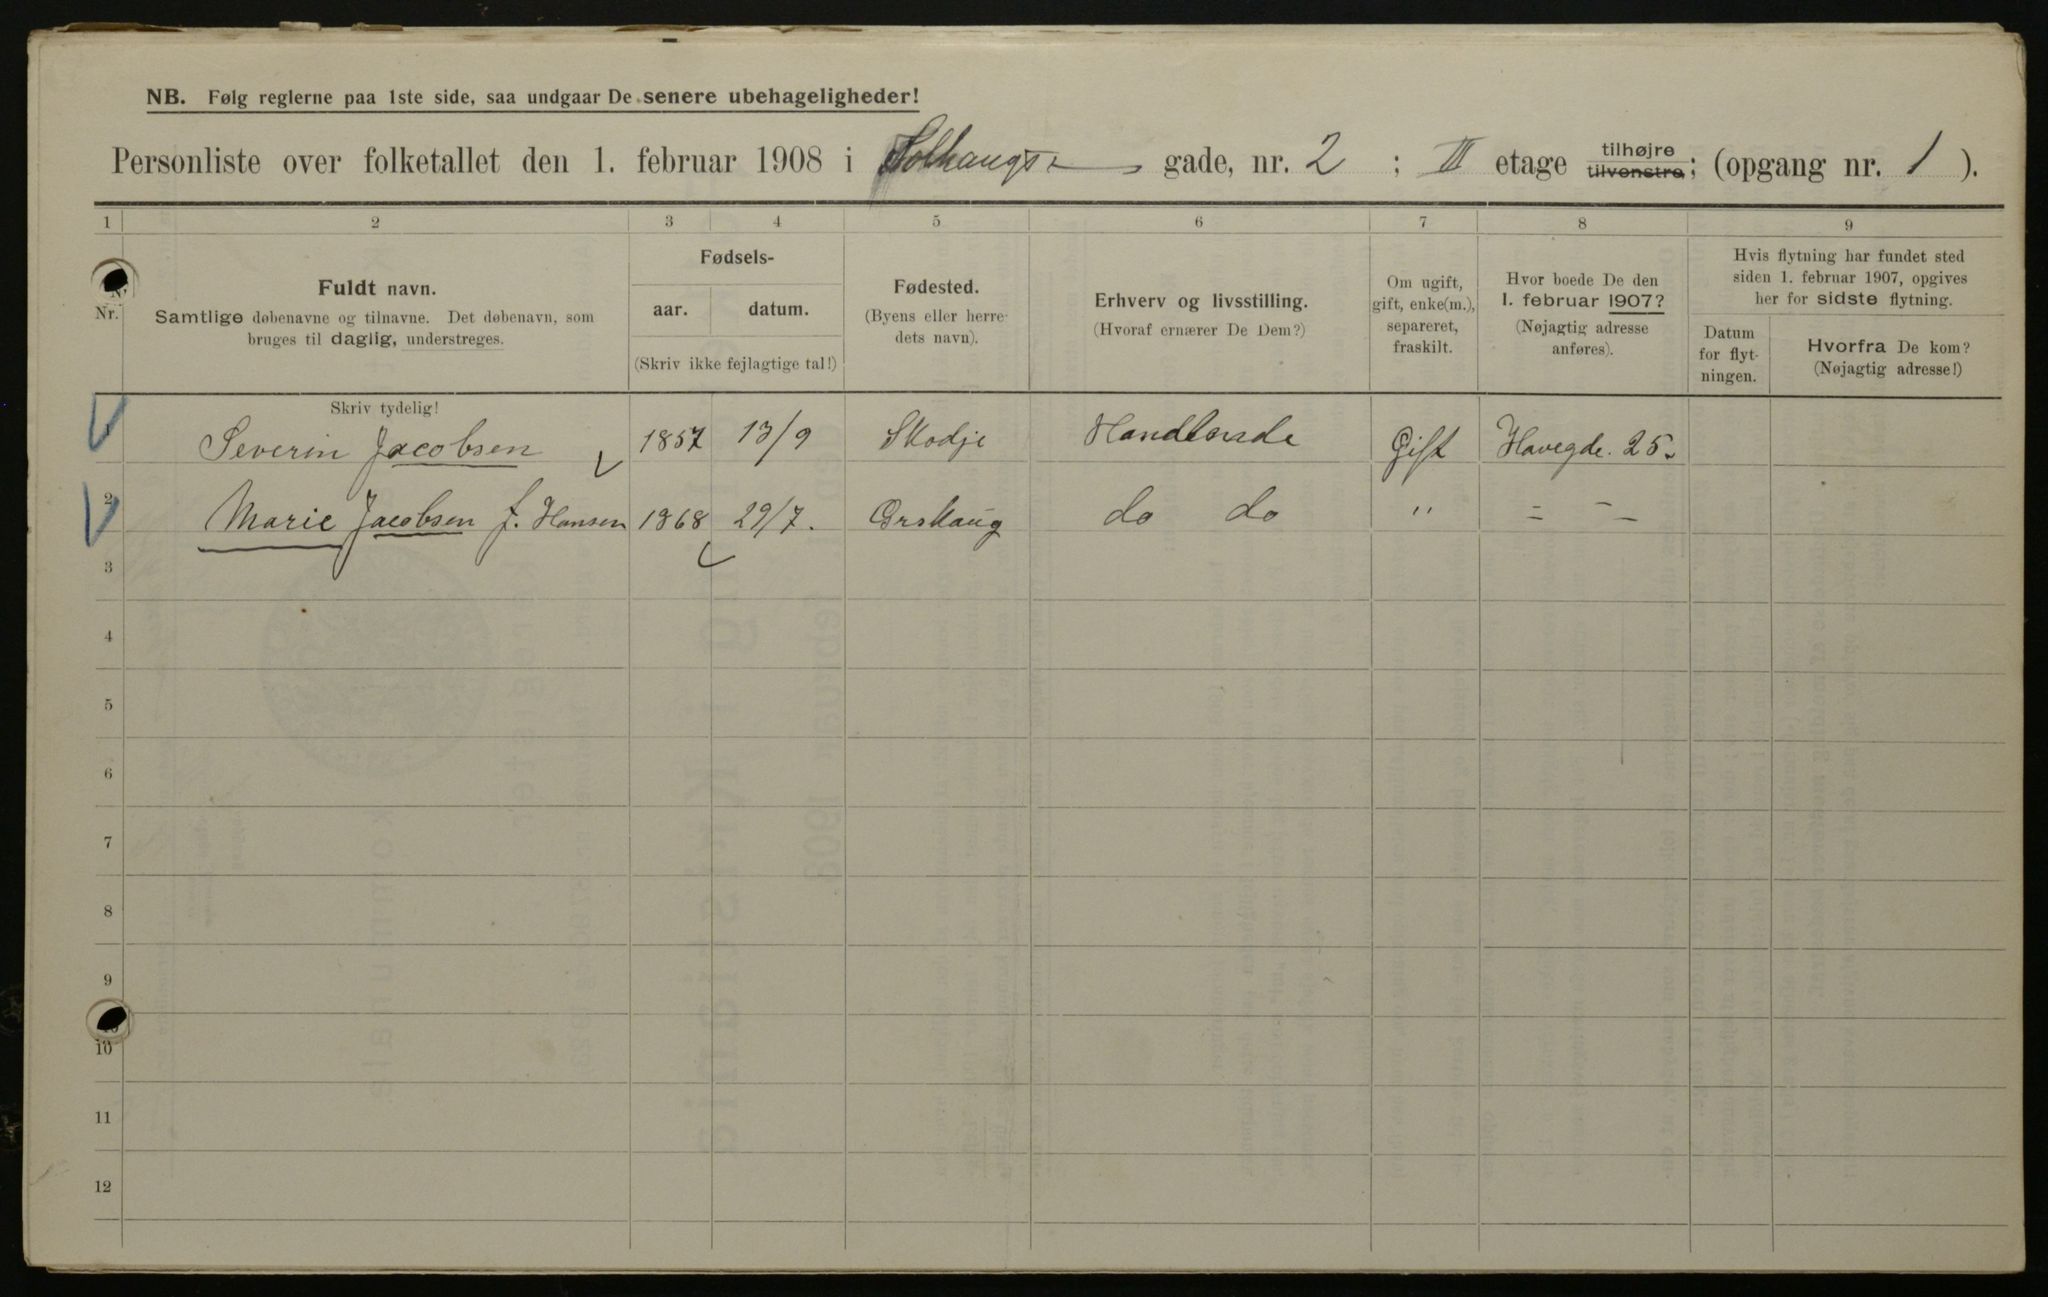 NB. Følg reglerne paa 1ste side, saa undgaar De senere ubehageligheder!
Personliste over folketallet den 1. februar 1908 i Solhaugs gade, nr. 2 ; II etage tilhøjre tilvenstre; (opgang nr. 1 ).
1 2 3 4 5 6 7 8 9
Nr.
Fuldt navn.
Samtlige døbenavne og tilnavne. Det døbenavn, som
bruges til daglig, understreges.
Fødsels-
aar. datum.
(Skriv ikke fejlagtige tal!)
Fødested.
(Byens eller herre-
dets navn).
Erhverv og livsstilling.
(Hvoraf ernærer De Dem?)
Om ugift,
gift, enke(m.),
separeret,
fraskilt.
Hvor boede De den
1. februar 1907?
(Nøjagtig adresse
anføres).
Hvis flytning har fundet sted
siden 1. februar 1907, opgives
her for sidste flytning.
Datum
for flyt-
ningen.
Hvorfra De kom?
(Nøjagtig adresse!)
Skriv tydelig!
Severin Jacobsen 1857 13/9 Skodje Gift Havegde. 25.
2 Marie Jacobsen f. Hansen 1868 29/7. Ørskaug do do " = - -
3
4
5
6
7
8
9
10
11
12